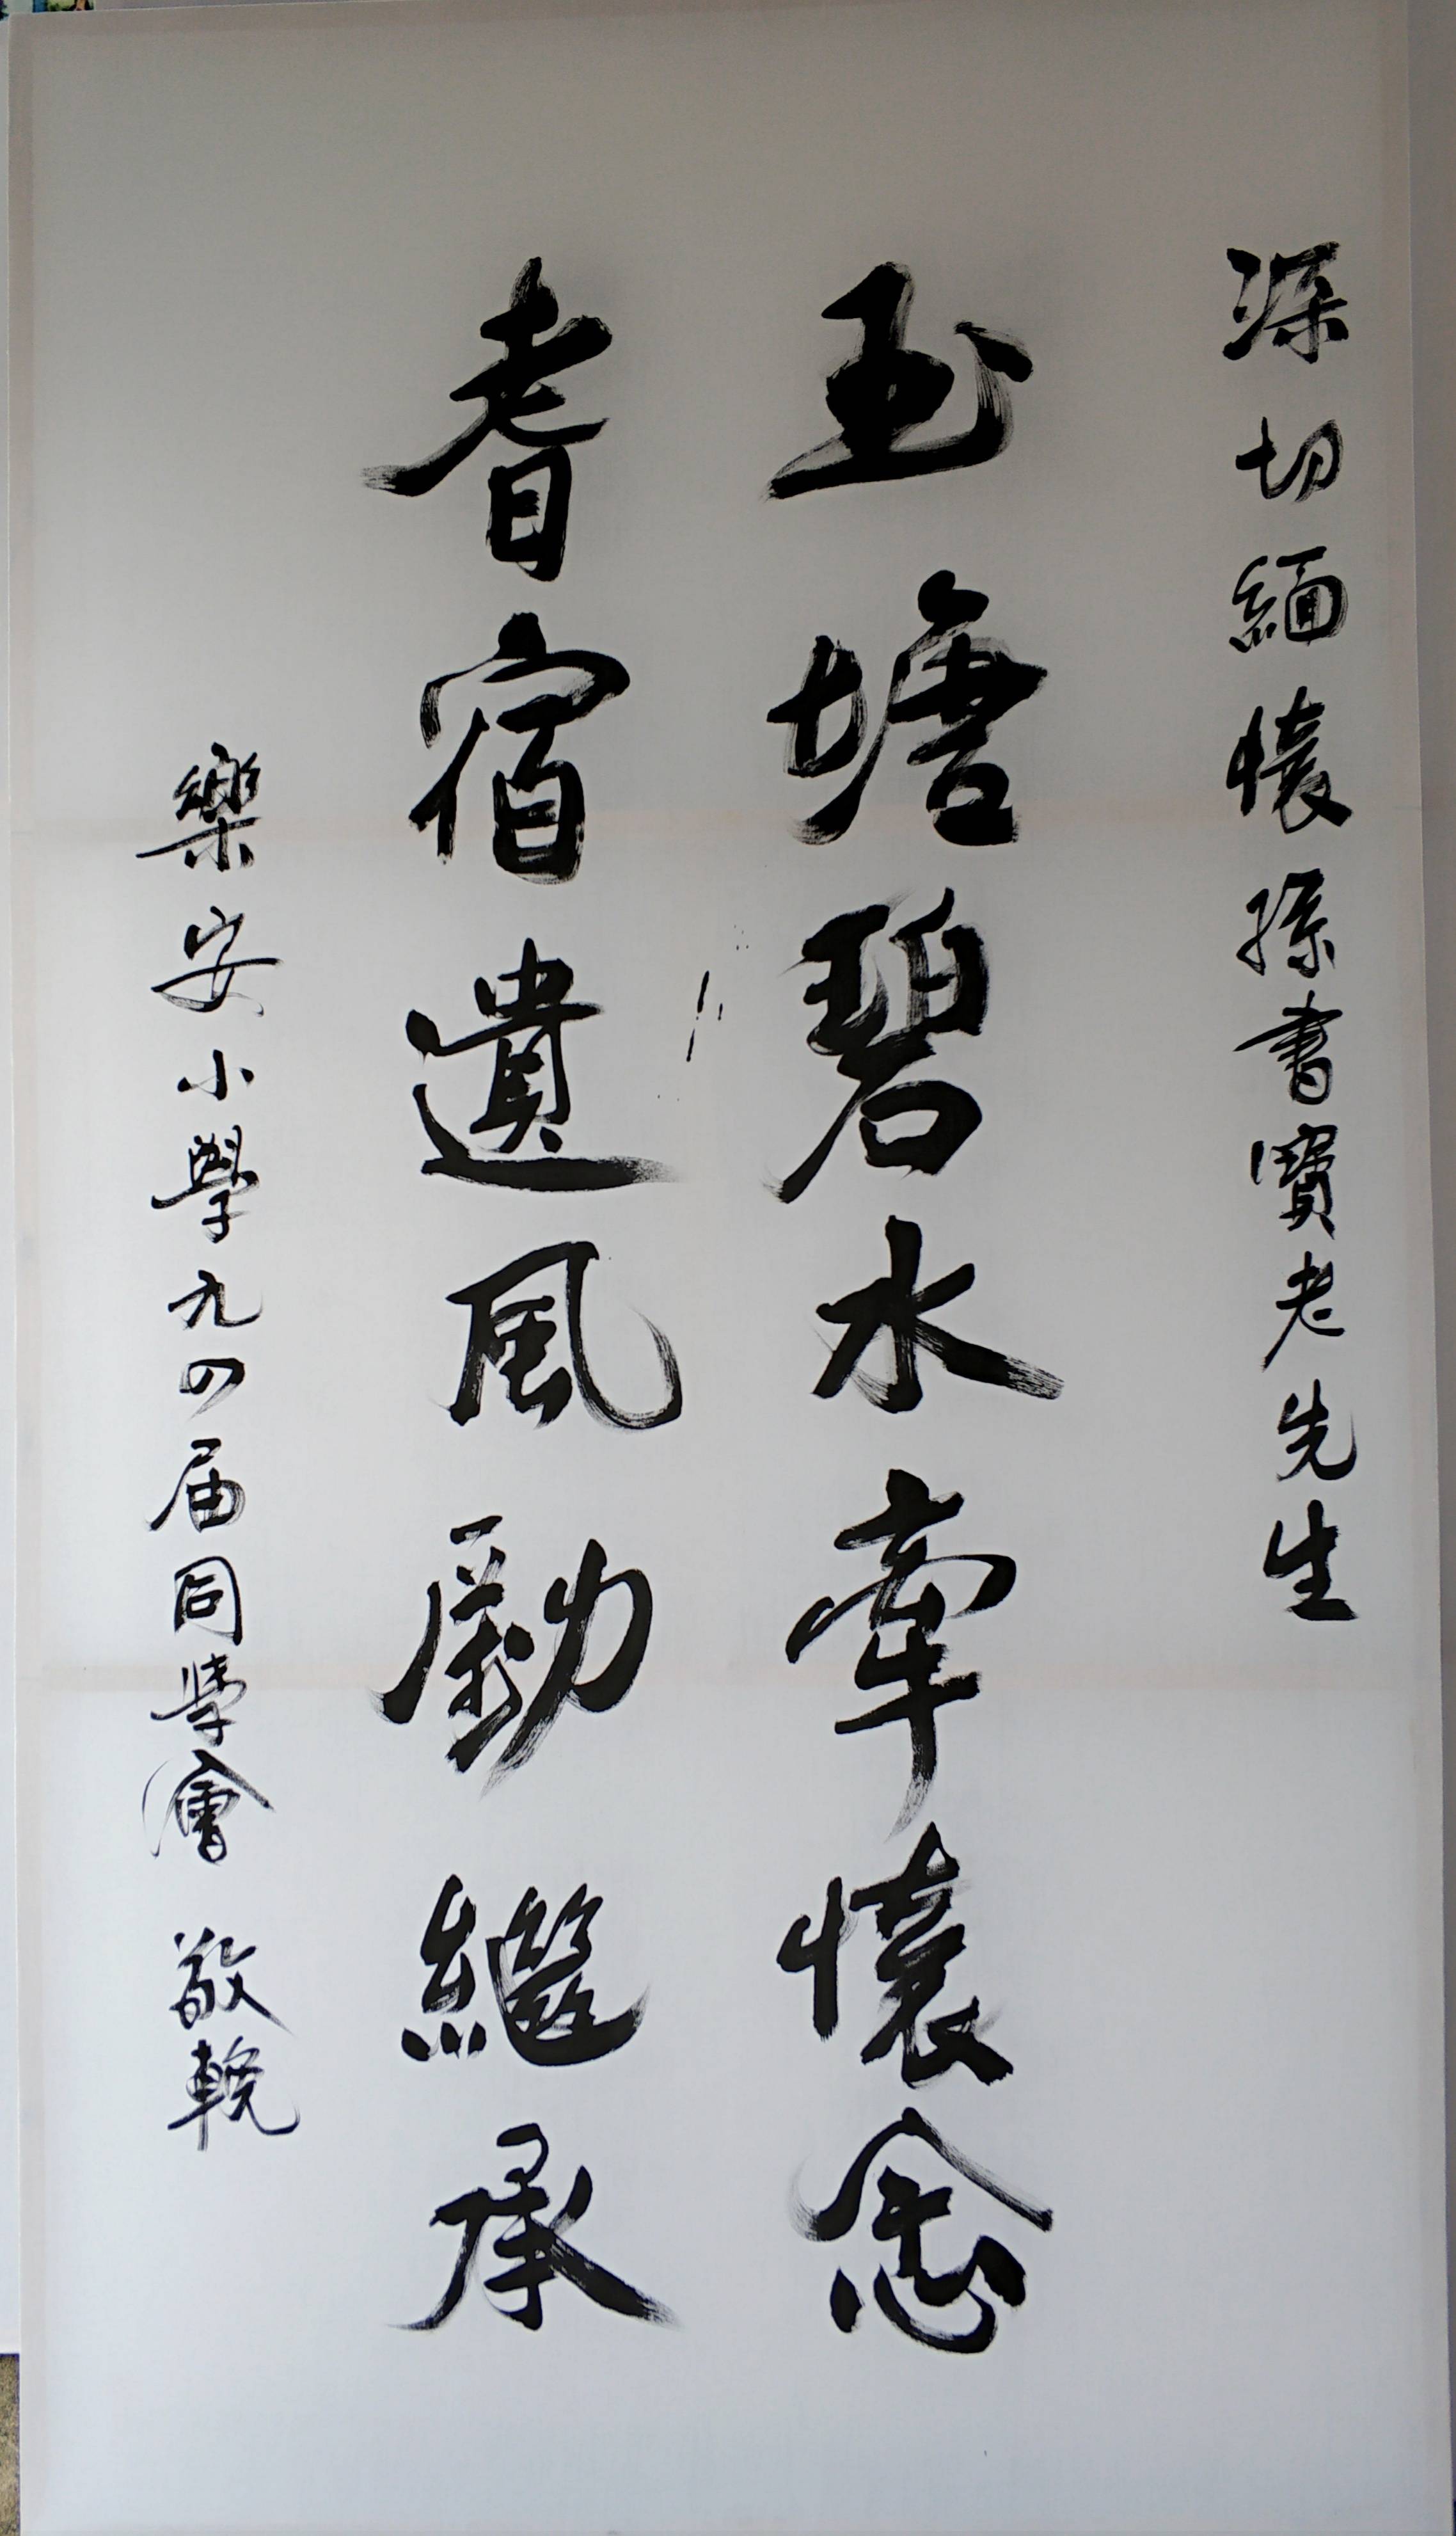 深切緬懷孫書寶老先生
玉塘碧水牽懷念
耆宿遺風勵繼承
樂安小學九四届同學會 敬輓